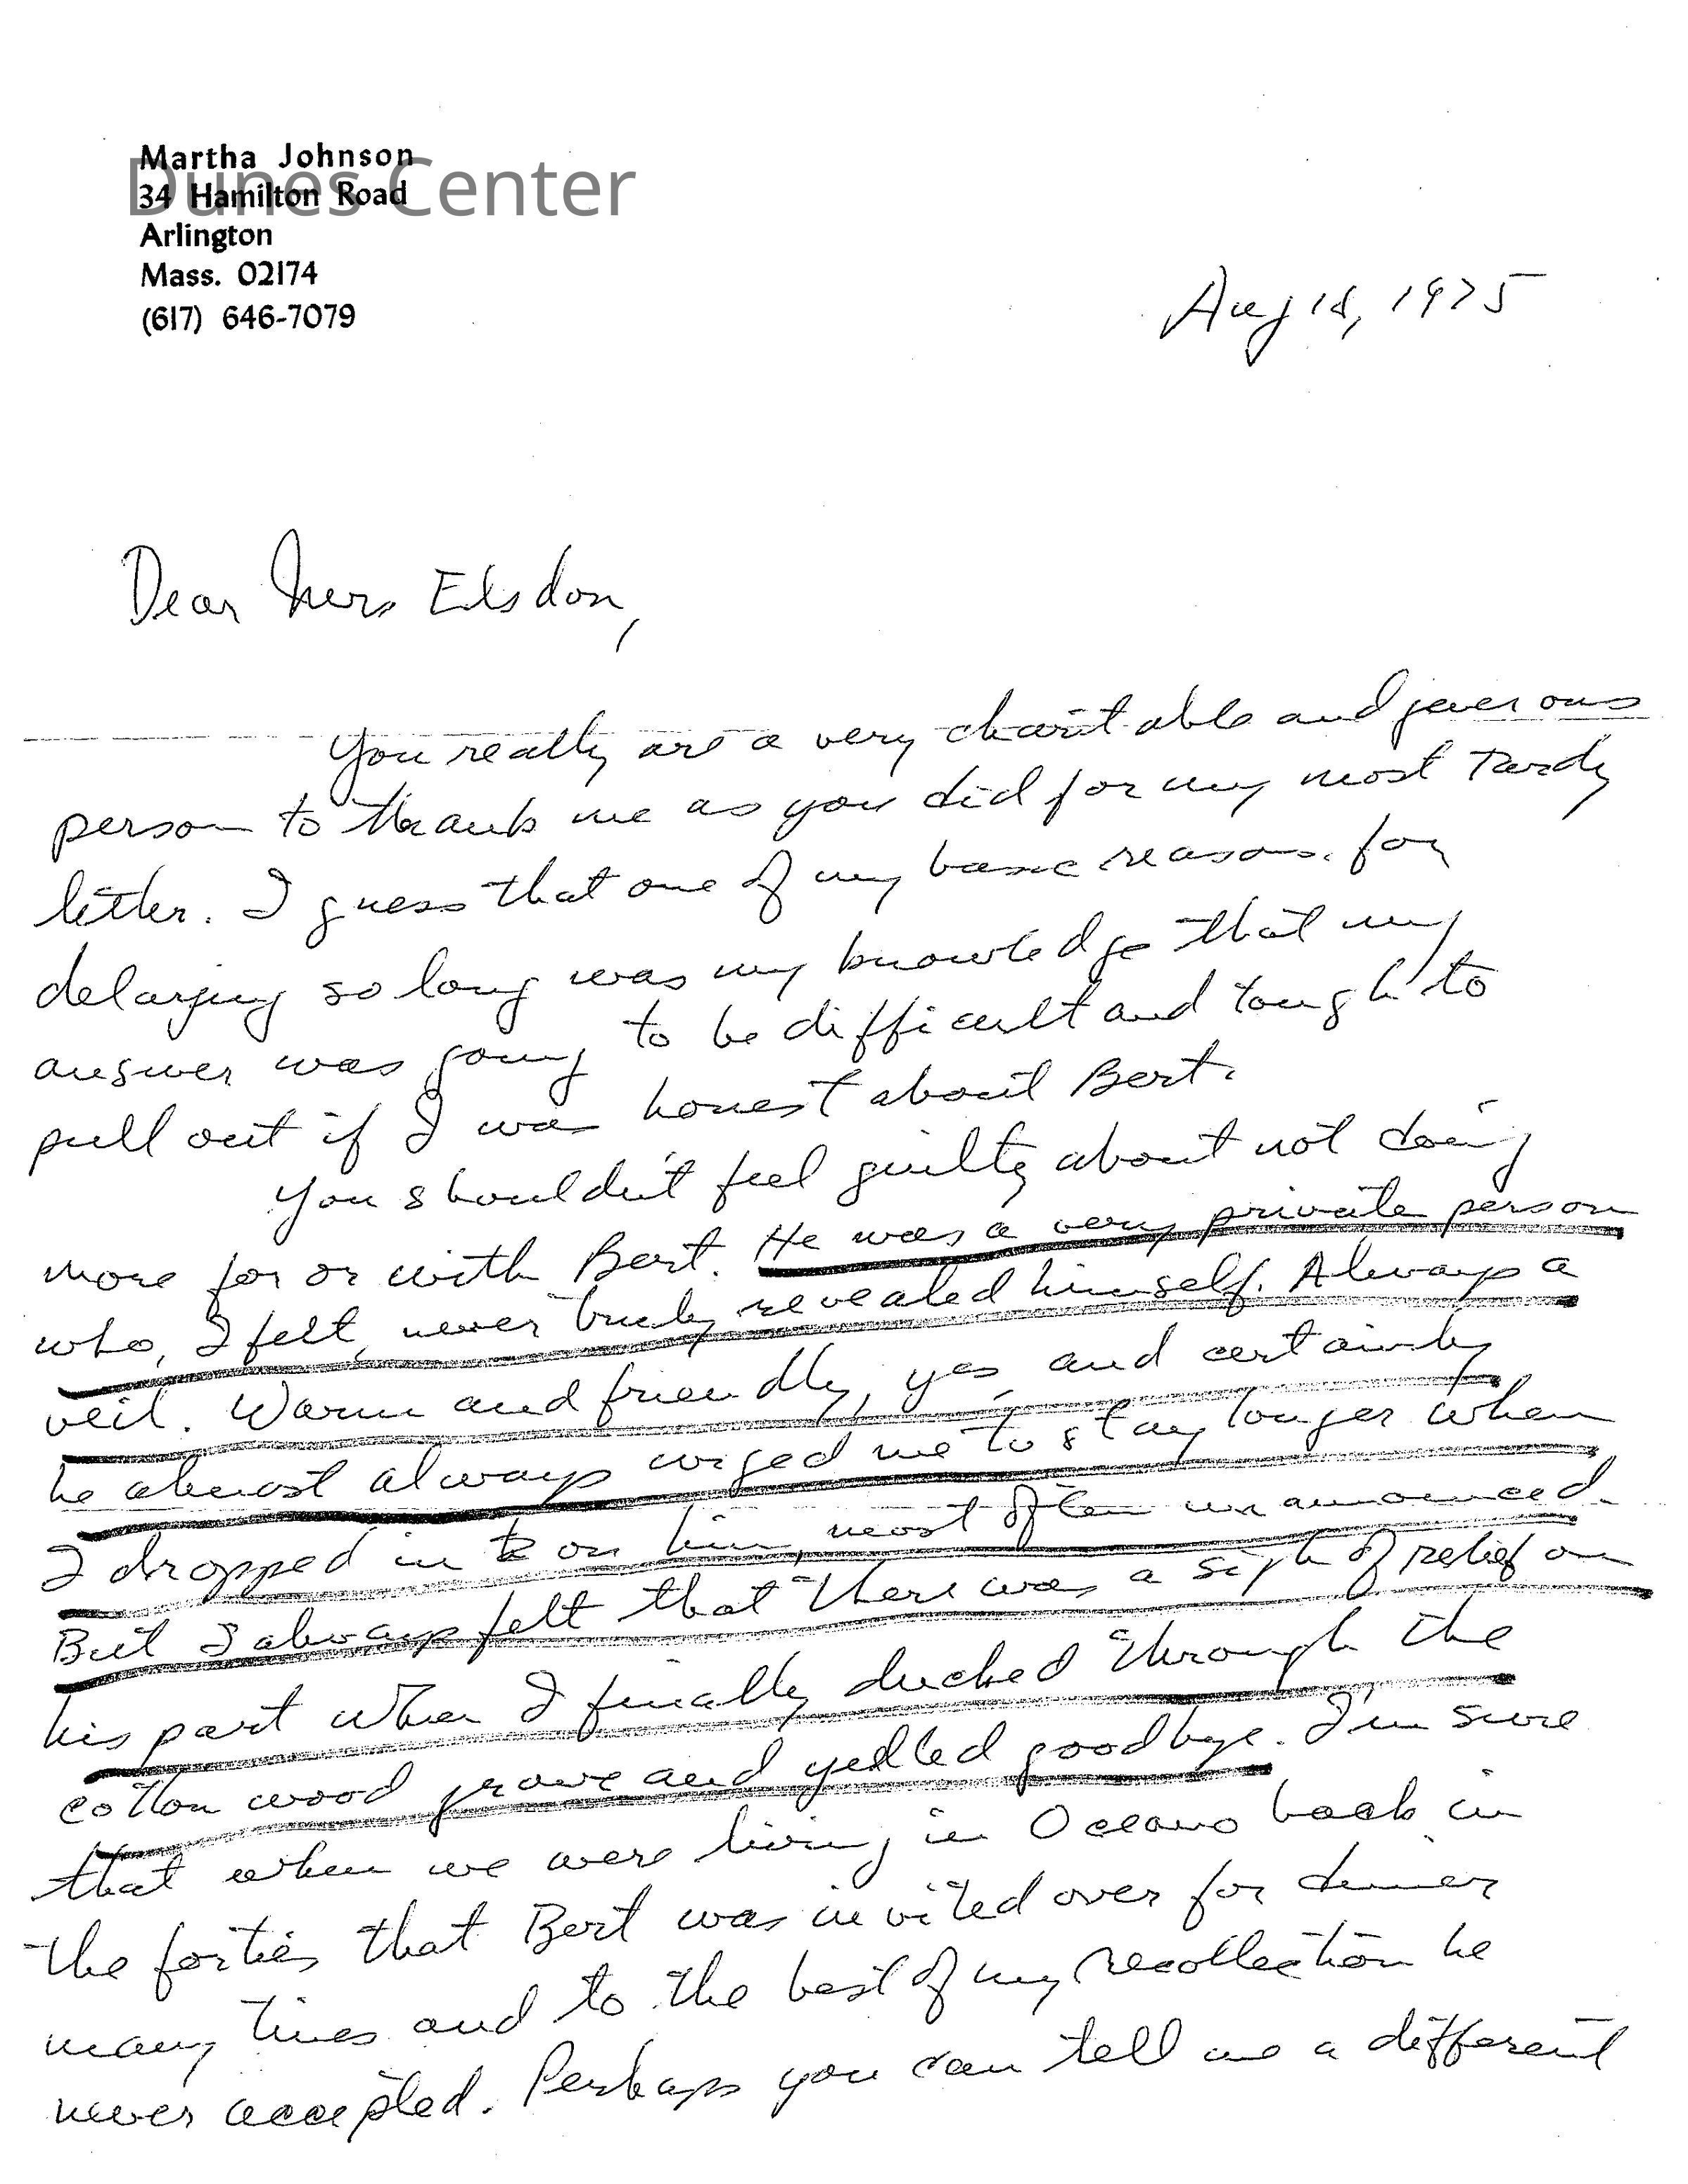 Martha Johnson
Dunes Center
34 Hamilton Road
Arlington
Mass. 02174
(617) 646-7079
Aug 18, 1975
Dear Mrs Elsdon,
You really are a very charitable and generous
person to thank me as you did for my most tardy
letter. I guess that one of my basic reasons for
delaying so long was my knowledge that my
answer was going to be difficult and tough to
pull out if I was honest about Bert.
You shouldn't feel guilty about not doing
more for or with Bert. He was a very private person
who, I felt, never truly revealed himself. Always a
veil. Warm and friendly, yes, and certainly
he almost always urged me to stay longer when
I dropped in on him, most often unannounced.
But I always felt that there was a sigh of relief on
his part when I finally ducked through the
cottonwood grove and yelled goodbye. I'm sure
that when we were living in Oceano back in
the forties that Bert was invited over for dinner
many times and to the best of my recollection he
never accepted. Perhaps you can tell me a different